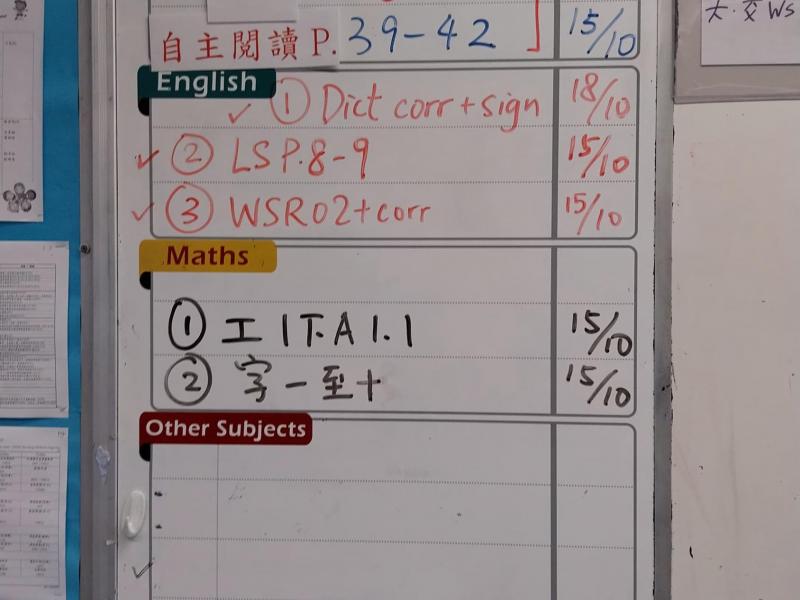 大.交 WS
自主閱讀 P. 39-42 15/10
English
① Dict corr + sign 18/10
② LS P.8-9 15/10
③ WSR02+corr 15/10
Maths
① 工 1下A 1.1 15/10
② 字一至十 15/10
Other Subjects